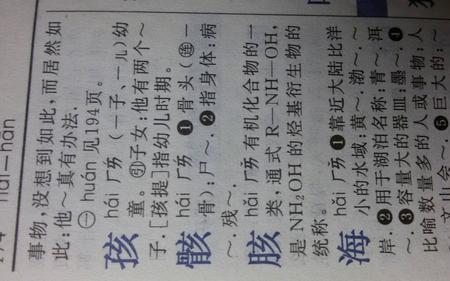 hai—han
事物,没想到如此,而居然如
此:他~真有办法.
㊀ huán 见194页.
孩 hái ㄏㄞˊ (—子、—儿)幼
童。㊁子女:他有两个~
子.[孩提]指幼儿时期.
骸 hái ㄏㄞˊ ❶骨头(㊣—
骨):尸~. ❷指身体:病
~.残~.
胲 hǎi ㄏㄞˇ 有机化合物的一
类,通式 R—NH—OH,
是NH₂OH的烃基衍生物的
统称.
海 hǎi ㄏㄞˇ ❶靠近大陆比洋
小的水域:黄~.渤~.~
岸. ❷用于湖泊名称:青~.洱
~. ❸容量大的器皿:墨~. ❹
比喻数量多的人或事物:人
~.文山会~. ❺巨大的:~